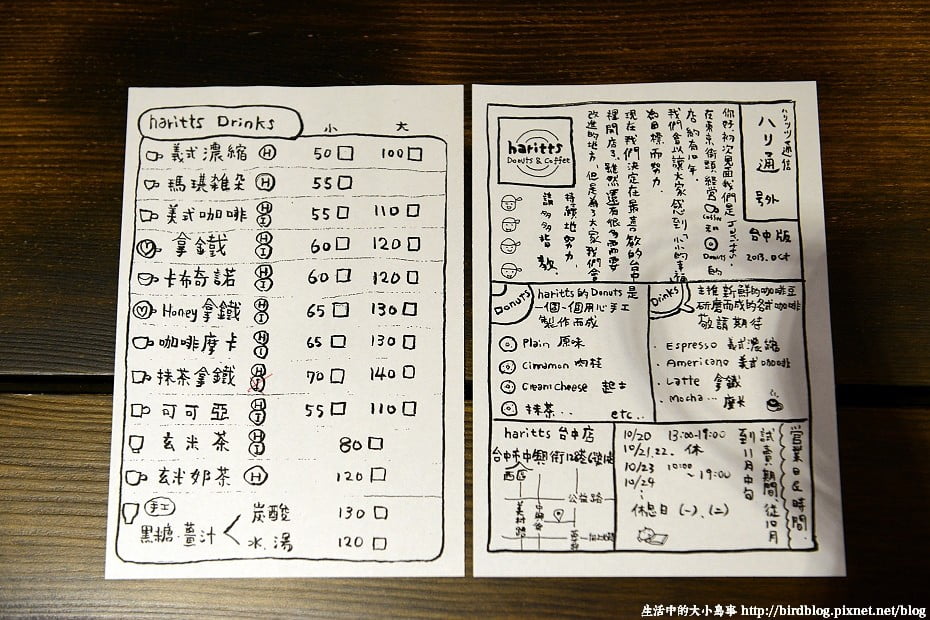 haritts Drinks 小 大
義式濃縮 H 50 100
瑪琪雜朵 H 55
美式咖啡 H I 55 110
拿鐵 H I 60 120
卡布奇諾 H I 60 120
Honey拿鐵 H I 65 130
咖啡摩卡 H I 65 130
抹茶拿鐵 H I 70 140
可可亞 H I 55 110
玄米茶 H I 80
玄米奶茶 H 120
手工
黑糖·薑汁
炭酸 130
水.湯 120
ハリッツ通信
ハリ通
号外
台中版
2013. Oct
你好,初次見面我們是
在東京街頭經營 Coffee 和 Donuts 的
店約有10年,
我們會以讓大家感到「小小的幸福」
為目標而努力
現在我們決定在最喜歡的台中
裡開店了,雖然還有很多需要
改進的地方,但是為了大家我們會
持續地努力,
請多多指教.
haritts
Donuts & Coffee
Donuts
haritts的Donuts是
一個一個用心手工
製作而成
Plain 原味
Cinnamon 肉桂
Creamcheese 起士
抹茶..
etc..
Drinks
主推新鮮的咖啡豆
研磨而成的各式咖啡
敬請期待
Espresso 義式濃縮
Americano 美式咖啡
Latte 拿鐵
Mocha... 摩卡
haritts 台中店
台中市中興街
西區
公益路
美村路
中興街
營業日&時間.
試賣期間從10月
到11月中旬
10/20 13:00-19:00
10/21.22. 休
10/23 10:00
10/24 ~19:00
休息日 (一)、(二)
生活中的大小鳥事 http://birdblog.pixnet.net/blog